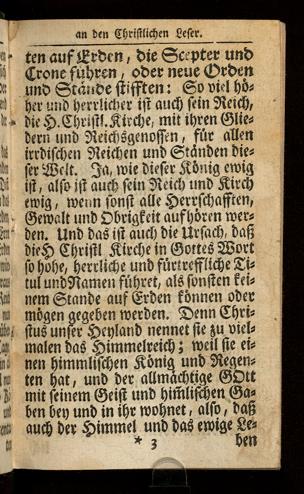 an den Christlichen Leser.
ten auf Erden, die Scepter und
Crone führen, oder neue Orden
und Stände stifften: So viel hö-
her und herrlicher ist auch sein Reich,
die H. Christl. Kirche, mit ihren Glie-
dern und Reichsgenossen, für allen
irrdischen Reichen und Ständen die-
ser Welt. Ja, wie dieser König ewig
ist, also ist auch sein Reich und Kirch
ewig, wenn sonst alle Herrschafften,
Gewalt und Obrigkeit aufhören wer-
den. Und das ist auch die Ursach, daß
die H Christl Kirche in Gottes Wort
so hohe, herrliche und fürtreffliche Ti-
tul und Namen führet, als sonsten kei-
nem Stande auf Erden können oder
mögen gegeben werden. Denn Chri-
stus unser Heyland nennet sie zu viel-
malen das Himmelreich; weil sie ei-
nen himmlischen König und Regen-
ten hat, und der allmächtige GOtt
mit seinem Geist und him̃lischen Ga-
ben bey und in ihr wohnet, also, daß
auch der Himmel und das ewige Le-
* 3 ben